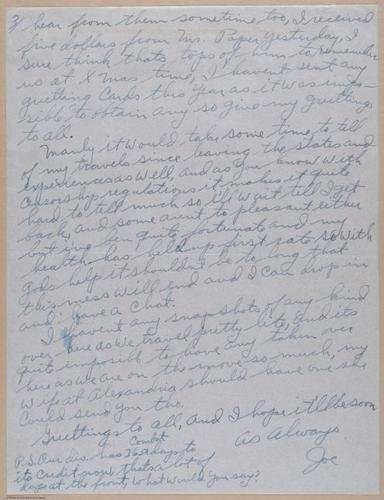 3/ hear from them sometime too, I received
five dollars from Mr. Pape yesterday, I
sure think thats tops of him to remember
us at Xmas time, I havent sent any
greetting Cards this year as it was impo-
sible to obtain any so give my greittings
to all.
Manly it would take some time, to tell
of my travels since leaving the states and
experiences as well, and as you know with
Censorship regulations it makes it quite
hard to tell much so I'll wait till I get
back, and some aunt to pleasant either
but i've ben quite fortunat and my
health has held up first rate, so with
gods help it shouldn't be to long that
this mess will end and I can drop in
and have a Chat.
I havent any snapshots of any kind
over here as we travel pretty lite, and its
quite imposible to have any taken over
here as we are on the move so much, my
wife at Alexandria should have one she
Could send you tho.
Greittings to all, and I hope it'll be soon
As Always
Joe
P.S. Our div. has 365 Combt days to
its Credit now, thats a lot of
days at the front, What Would You say?